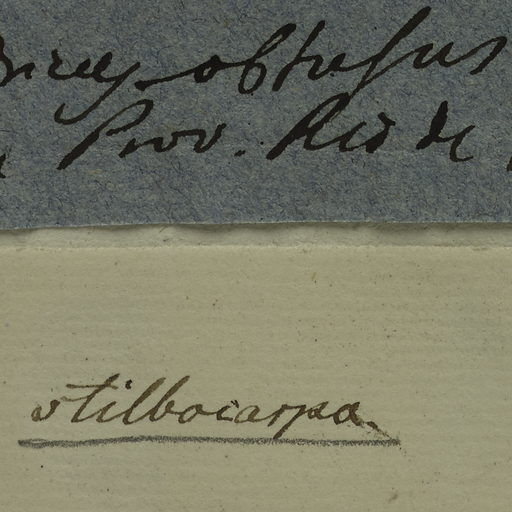 obtusus
Prov. Rio de
stilbocarpa.